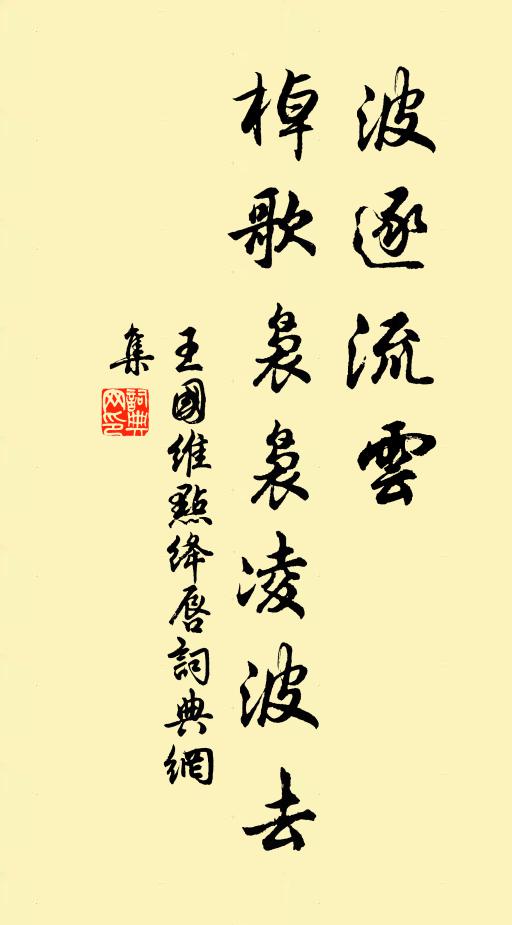 波逐流雲
棹歌裊裊凌波去
王國維點绛唇詞典網
集
詞典
网印